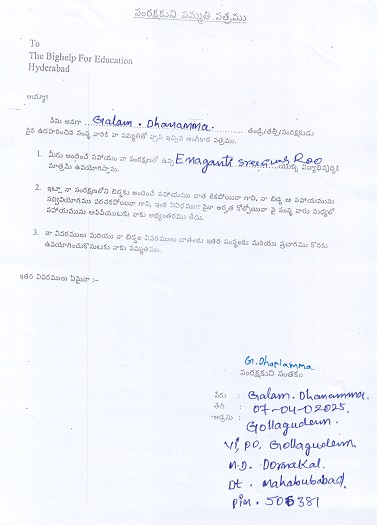 సంరక్షకుని సమ్మతి పత్రము
To
The Bighelp For Education
Hyderabad
అయ్యా!
నేను అనగా ....Galam. Dhanamma.......... తండ్రి/తల్లి/సంరక్షకుడు
పైన ఉదహరించిన సంస్థ వారికి నా సమ్మతితో వ్రాసి ఇచ్చిన అంగీకార పత్రము.
1. మీరు అందించే సహాయం నా సంరక్షణలో ఉన్న Enaganti Sreenivas Rao యొక్క విద్యాభివృద్ధికి
మాత్రమే ఉపయోగిస్తాను.
2. ఇట్లా నా సంరక్షణలోని బిడ్డకు అందించే సహాయము దాత లేకపోయినా గాని, నా బిడ్డ ఆ సహాయమును
సద్వినియోగము పరచకపోయినా గాని, ఇంక ఏవిధముగా నైనా అర్హత కోల్పోయినా పై సంస్థ వారు మధ్యలో
సహాయమును ఆపివేయుటకు నాకు అభ్యంతరము లేదు.
3. నా వివరములు మరియు నా బిడ్డల వివరములు దాతలకు ఇతర సంస్థలకు మరియు ప్రచారము కొరకు
ఉపయోగించుకొనుటకు నాకు సమ్మతము.
ఇతర వివరములు ఏమైనా :-
G. Dhanamma
సంరక్షకుని సంతకం
పేరు : Galam. Dhanamma.
తేది : 07-04-02025.
అడ్రసు : Gollagudem.
Vi, PO, Gollagudem.
M.D. Dornakal.
Dt. Mahabubabad.
Pin. 506381